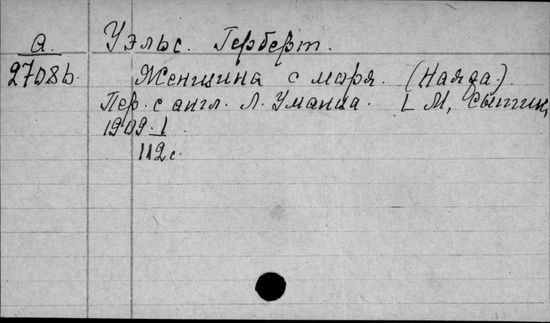 А. Уэльс. Герберт.
27086. Женщина с моря. (Наяда.)
Пер. с англ. Л. Уманца. [ М, Сытин,
1909. ]
112 с.